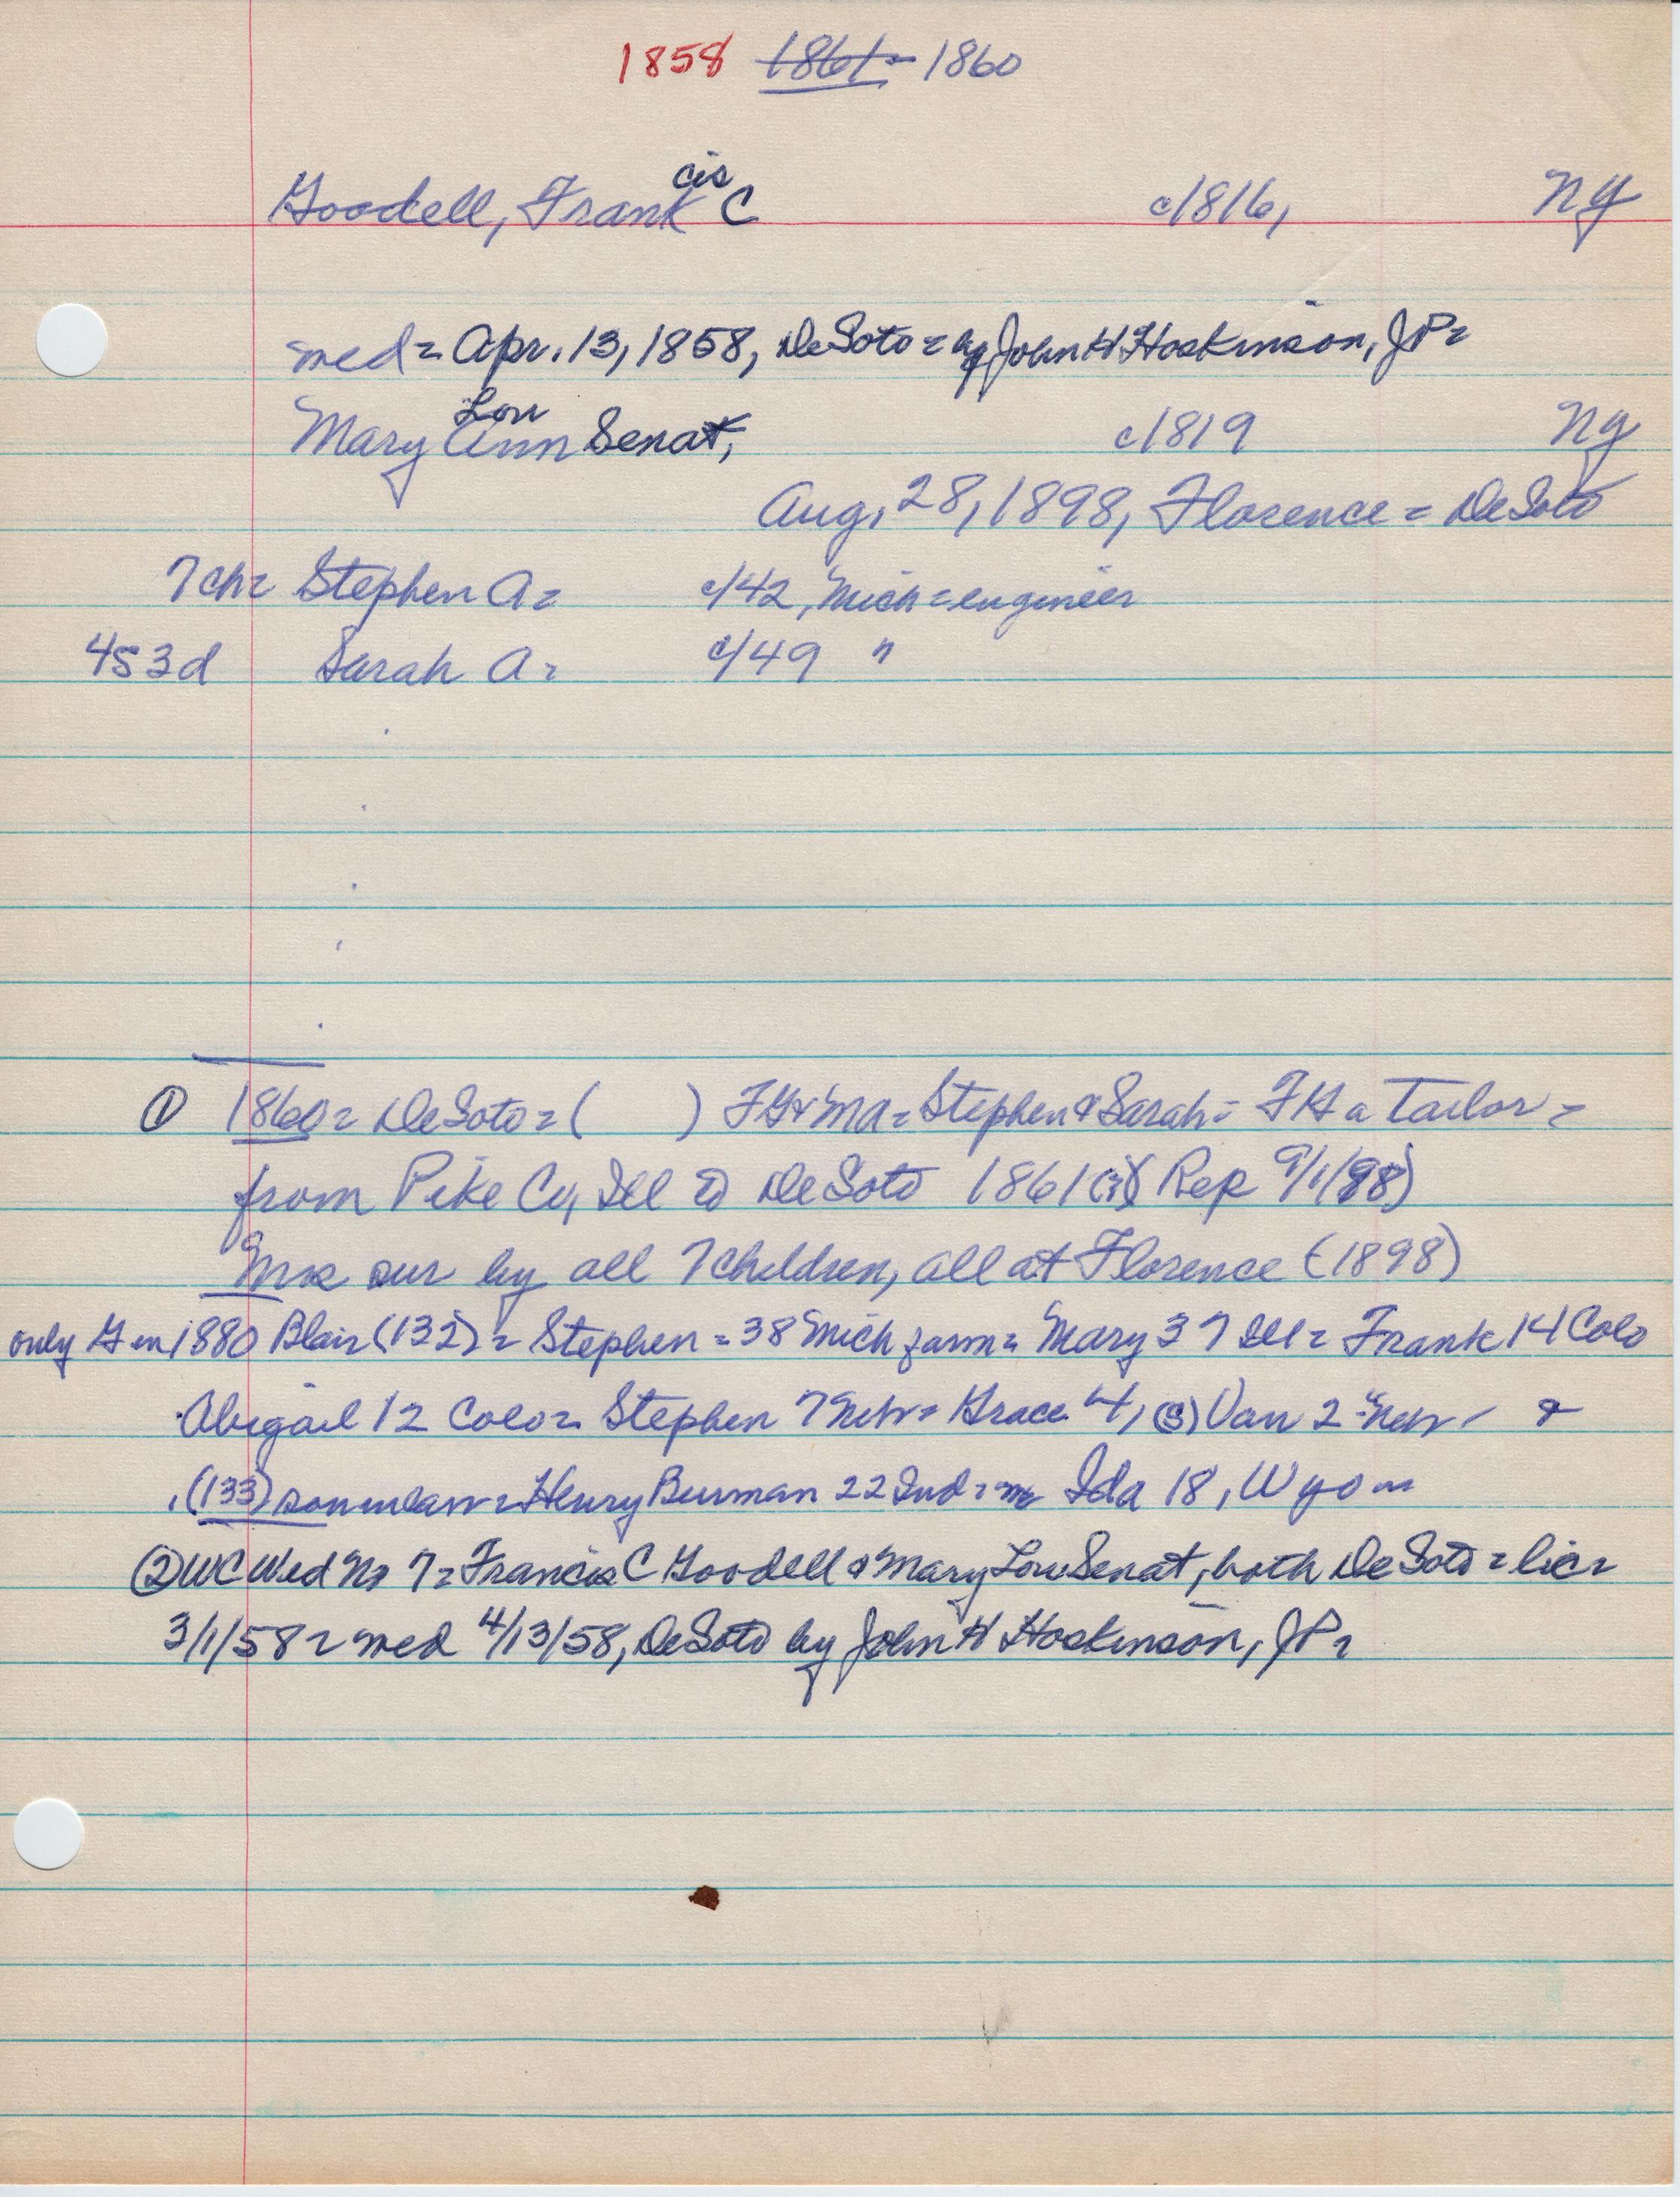 1858 1861= 1860
cis
Goodell, Frank C c/1816, NY
med= Apr. 13, 1858, DeSoto= by John H Hoskinson, JP=
Lou
Mary Ann Senat, c/1819 NY
Aug. 28, 1898, Florence = DeSoto
7 ch= Stephen A= c/42, Mich=engineer
4s 3d Sarah A= c/49 "
① 1860= DeSoto=( ) FG & MA= Stephen & Sarah= FG a Tailor=
from Pike Co, Ill to DeSoto 1861(?)( Rep 9/1/98)
Mrs sur by all 7 children, all at Florence (1898)
only G in 1880 Blair (132)= Stephen=38 Mich farm= Mary 37 Ill= Frank 14 Colo
Abigail 12 Colo= Stephen 7 Neb= Grace 4, (S) Van 2 "Neb- &
(133) soninlaw= Henry Burman 22 Ind= Ida 18, Wyo=
② WC Wed No 7= Francis C Goodell & Mary Lou Senat, both DeSoto= lic=
3/1/58= med 4/13/58, DeSoto by John H Hoskinson, JP=